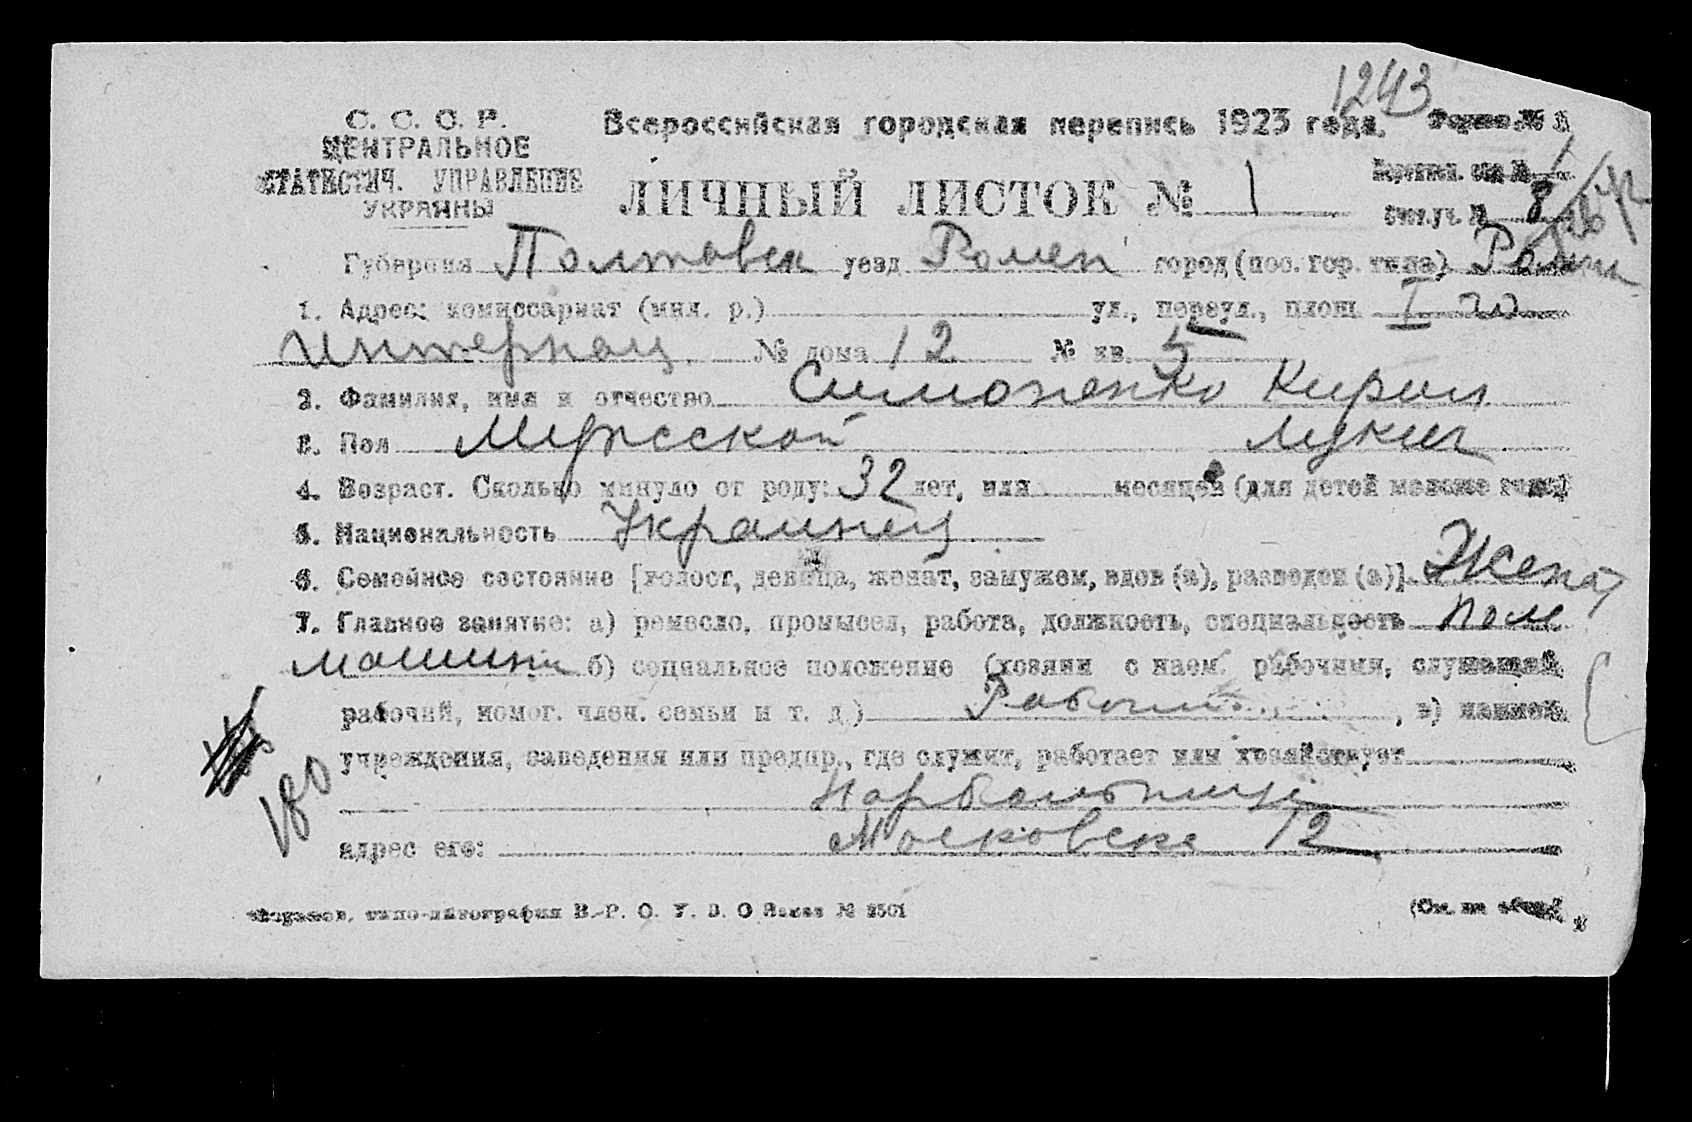 1243
С. С. С. Р.
ЦЕНТРАЛЬНОЕ
СТАТИСТИЧ. УПРАВЛЕНИЕ
УКРАИНЫ
Всероссийская городская перепись 1923 года. Форма №
ЛИЧНЫЙ ЛИСТОК № 1
Переписн. отд №
Счет.уч. № 8
Губерния Полтавск уезд Ромен город (пос. гор. типа) Ромны
1. Адрес: комиссариат (мил. р.) ул., переул., площ. I го
Интернац. № дома 12 № кв. 5
2. Фамилия, имя и отчество Симоненко Кирил
3. Пол Мужской Лукич
4. Возраст. Сколько минуло от роду: 32 лет, или месяцев (для детей моложе года)
5. Национальность Украинец
6. Семейное состояние [холост, девица, женат, замужем, вдов (а), разведен (а)] Женат
7. Главное занятие: а) ремесло, промысел, работа, должность, специальность пом
машини б) социальное положение (хозяин с наем. рабочими, служащий,
рабочий, помог. член. семьи и т. д) Рабочий , в) назван.
учреждения, заведения или предпр., где служит, работает или хозяйствует
180
адрес его: Московска 12
типо-литография В.-Р. О. У. В. О Заказ № 2501
(См. на обор.)